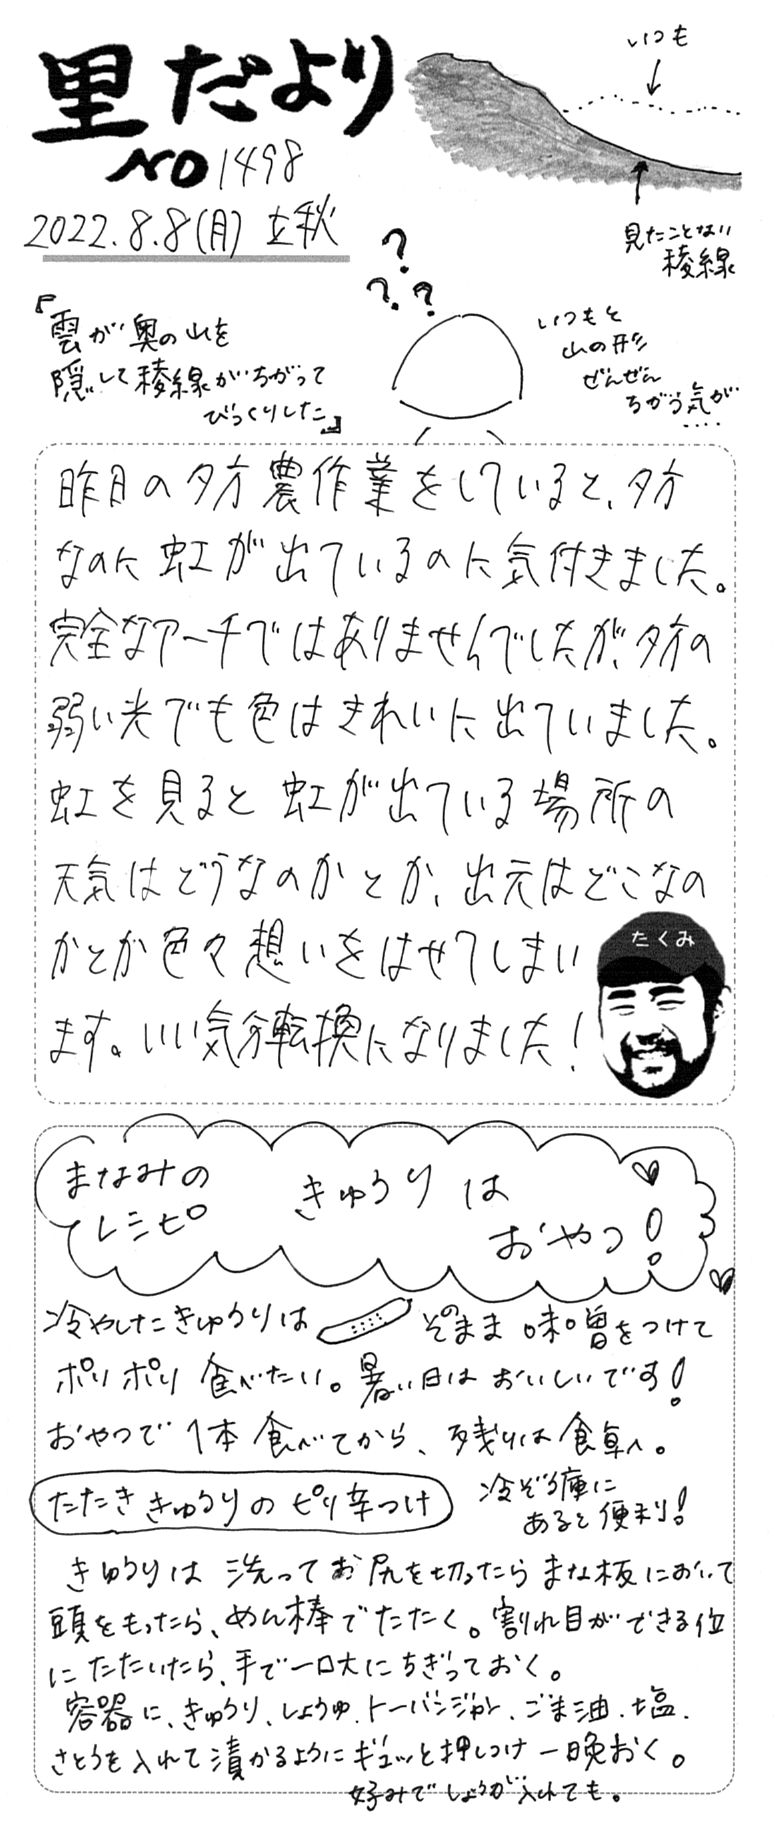 里だより
NO1498
2022.8.8(月) 立秋
いつも
見たことない
稜線
???
『雲が奥の山を
隠して稜線がちがって
びっくりした』
いつもと
山の形
ぜんぜん
ちがう気が
....
昨日の夕方農作業をしていると、夕方
なのに虹が出ているのに気付きました。
完全なアーチではありませんでしたが、夕方の
弱い光でも色はきれいに出ていました。
虹を見ると虹が出ている場所の
天気はどうなのかとか、出元はどこなの
かとか色々想いをはせてしまい
ます。いい気分転換になりました!
たくみ
まなみの
レシピ
きゅうりは
おやつ!
冷やしたきゅうりは そのまま味噌をつけて
ポリポリ食べたい。暑い日はおいしいです!
おやつで1本食べてから、残りは食卓へ。
たたききゅうりのピリ辛つけ
冷ぞう庫に
あると便利!
きゅうりは洗ってお尻を切ったらまな板において
頭をもったら、めん棒でたたく。割れ目ができる位
にたたいたら、手で一口大にちぎっておく。
容器に、きゅうり、しょうゆ、トーバンジャン、ごま油、塩、
さとうを入れて漬かるようにギュッと押しつけ一晩おく。
好みでしょうが入れても。